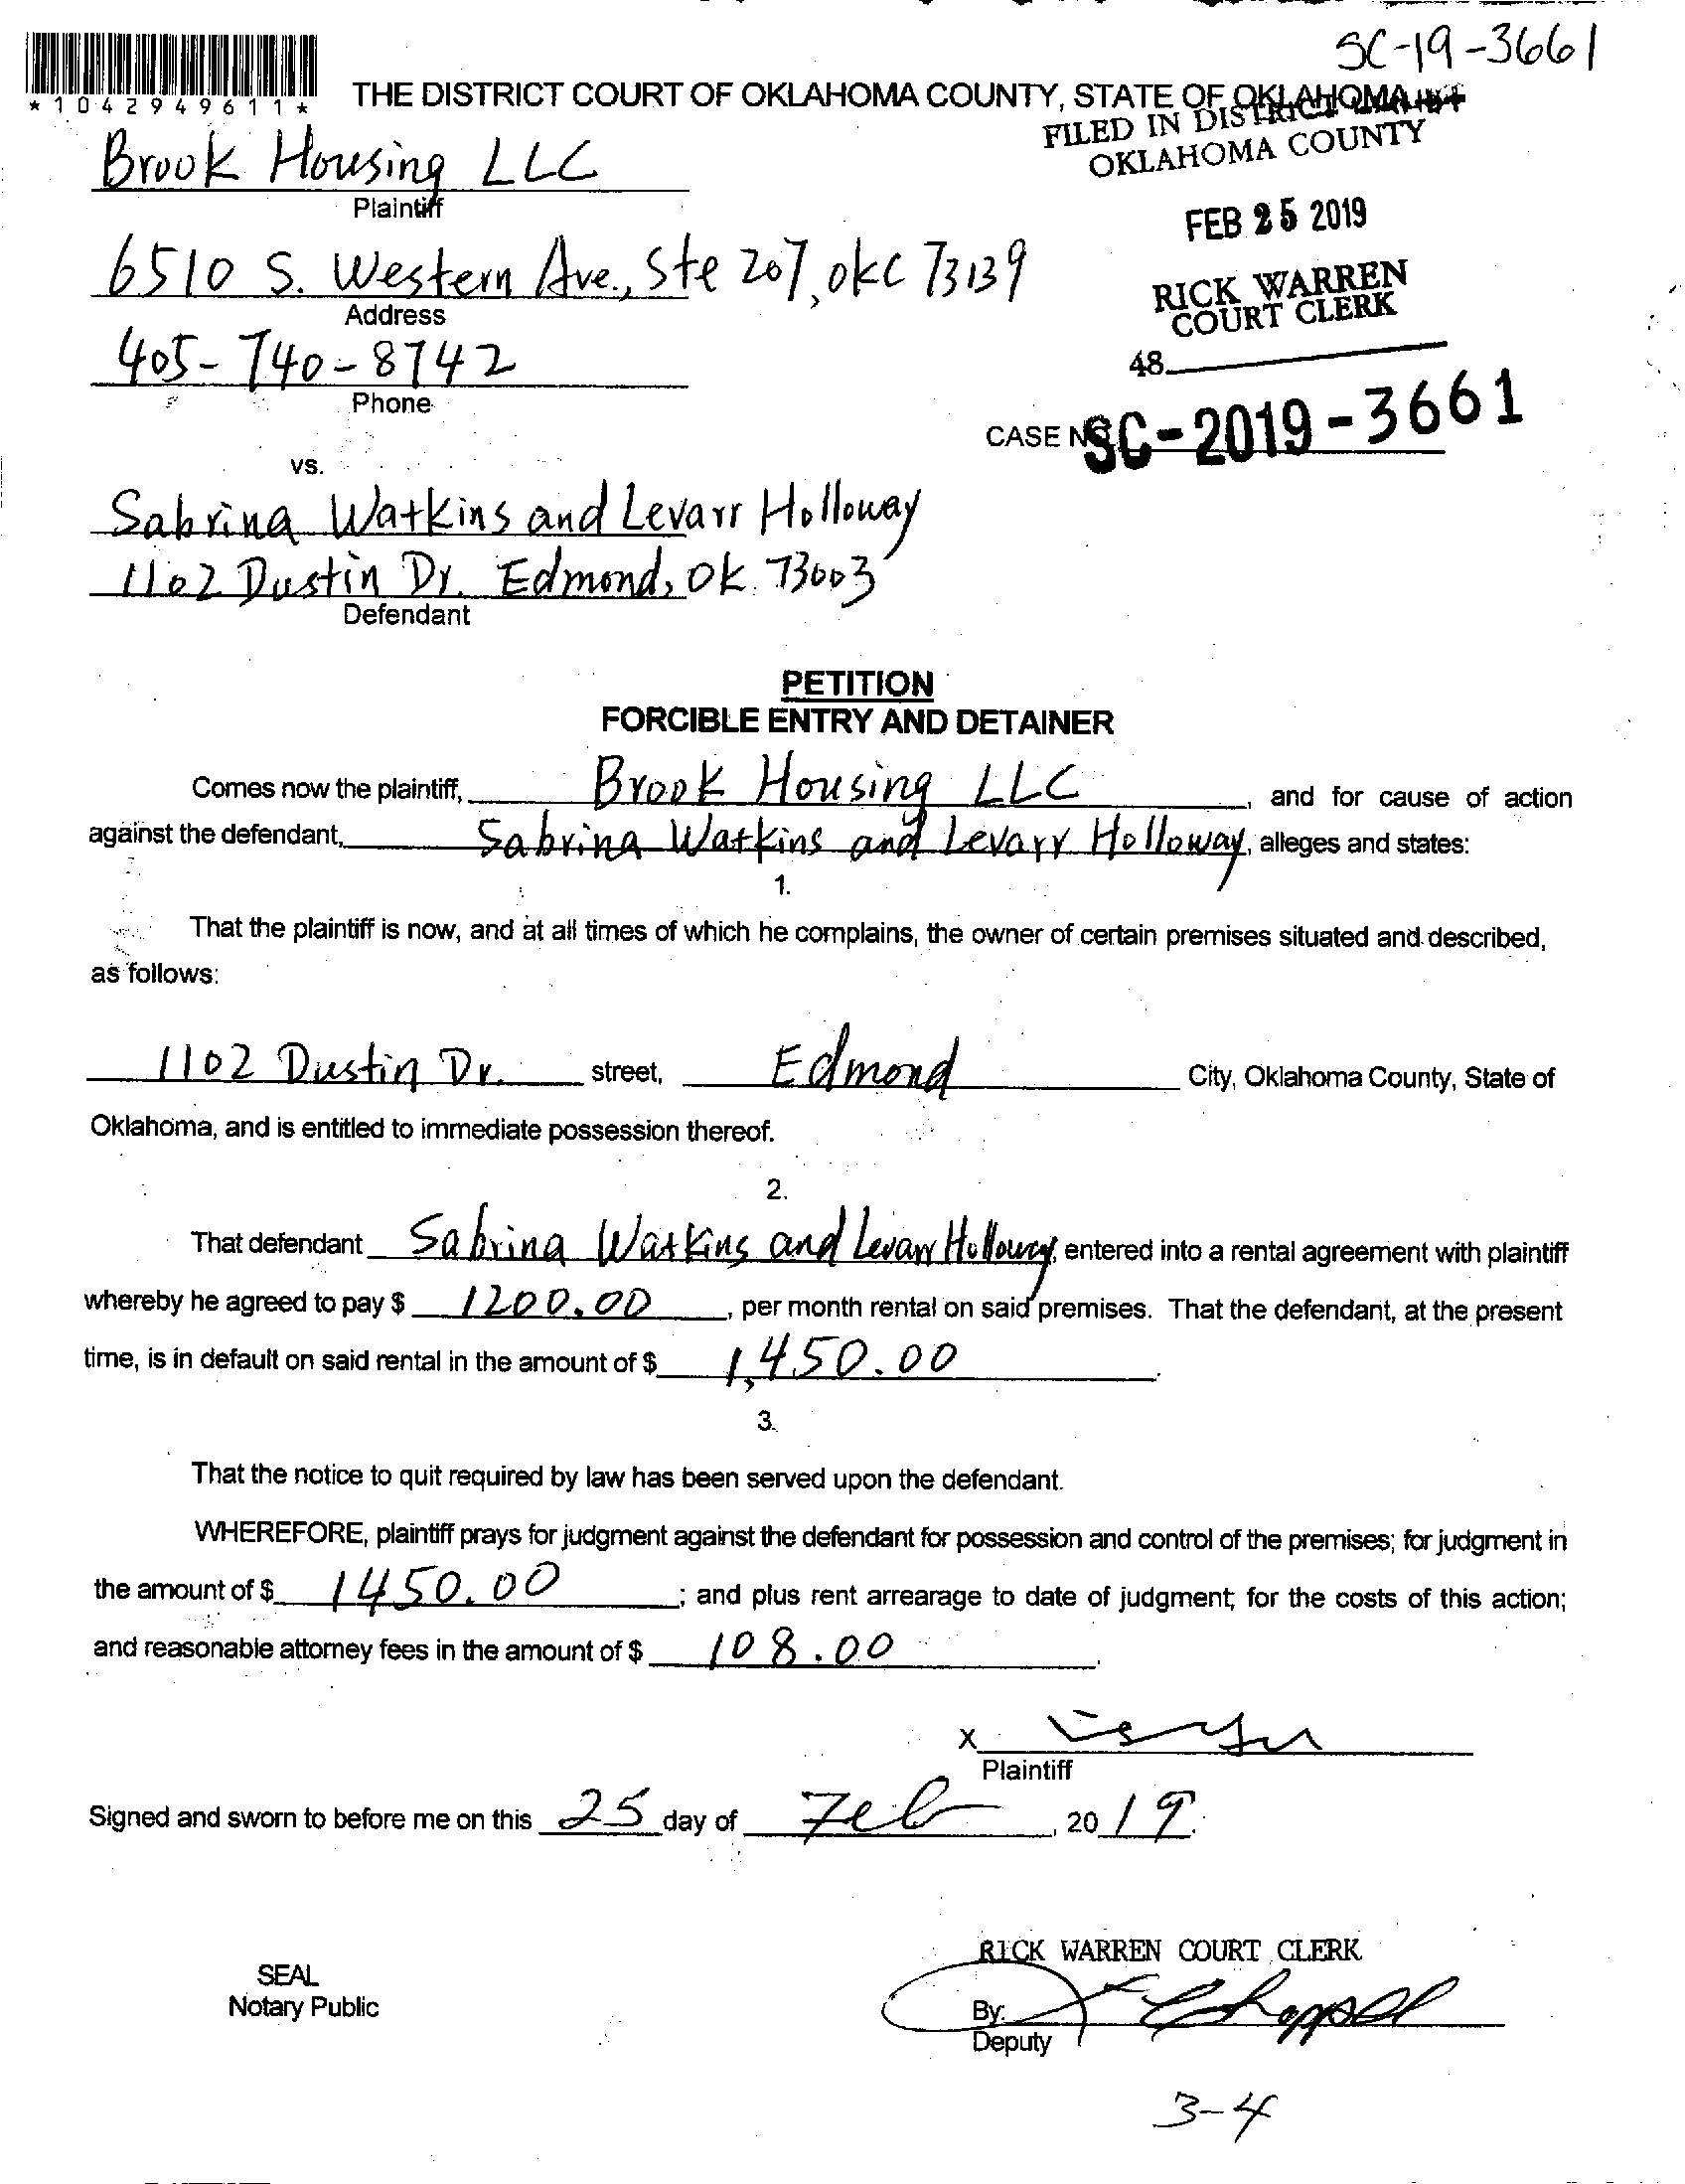 SC-19-3661
*1042949611*
THE DISTRICT COURT OF OKLAHOMA COUNTY, STATE OF OKLAHOMA
FILED IN DISTRICT COURT
OKLAHOMA COUNTY
Brook Housing LLC
Plaintiff
FEB 25 2019
6510 S. Western Ave., Ste 207, okc 73139
Address
RICK WARREN
COURT CLERK
405-740-8742
Phone
48
CASE NO. SC-2019-3661
vs.
Sabrina Watkins and Levarr Holloway
1102 Dustin Dr. Edmond, OK 73003
Defendant
PETITION
FORCIBLE ENTRY AND DETAINER
Comes now the plaintiff, Brook Housing LLC, and for cause of action
against the defendant, Sabrina Watkins and Levarr Holloway, alleges and states:
1.
That the plaintiff is now, and at all times of which he complains, the owner of certain premises situated and described,
as follows:
1102 Dustin Dr. street, Edmond City, Oklahoma County, State of
Oklahoma, and is entitled to immediate possession thereof.
2.
That defendant Sabrina Watkins and Levarr Holloway, entered into a rental agreement with plaintiff
whereby he agreed to pay $ 1200.00, per month rental on said premises. That the defendant, at the present
time, is in default on said rental in the amount of $ 1,450.00.
3.
That the notice to quit required by law has been served upon the defendant.
WHEREFORE, plaintiff prays for judgment against the defendant for possession and control of the premises; for judgment in
the amount of $ 1450.00; and plus rent arrearage to date of judgment; for the costs of this action;
and reasonable attorney fees in the amount of $ 108.00.
X
Plaintiff
Signed and sworn to before me on this 25 day of Feb, 2019.
RICK WARREN COURT CLERK
SEAL
Notary Public
By:
Deputy
3-4